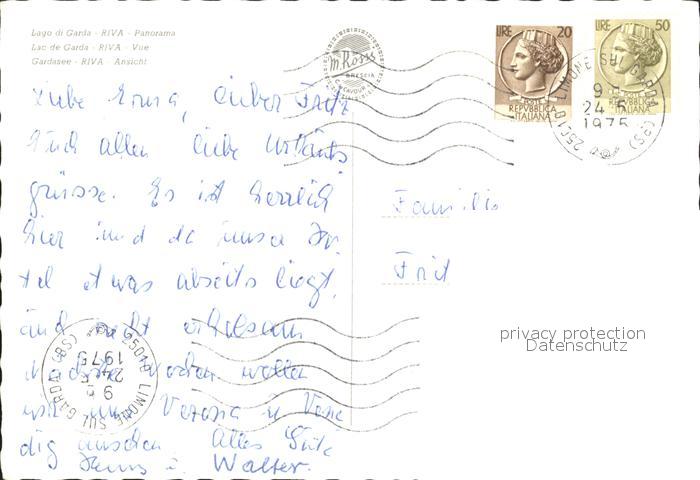 Lago di Garda - RIVA - Panorama
Lac de Garda - RIVA - Vue
Gardasee - RIVA - Ansicht
m. Rossi
BRESCIA
LIRE 20
POSTE
REPVBBLICA
ITALIANA
LIRE 50
POSTE
REPVBBLICA
ITALIANA
25010 LIMONE SUL GARDA (BS)
9
24 5
1975
Liebe Erna, lieber Fritz
Euch allen liebe Urlaubs
grüsse. Es ist herrlich
hier und da unser Ho-
tel etwas abseits liegt,
auch sehr erholsam
werden wollen
wir uns Verona u. Vene
dig ansehen Alles Gute
u. Walter.
Familie
Frit
25010 LIMONE SUL GARDA (BS)
9
24 5
1975
privacy protection
Datenschutz